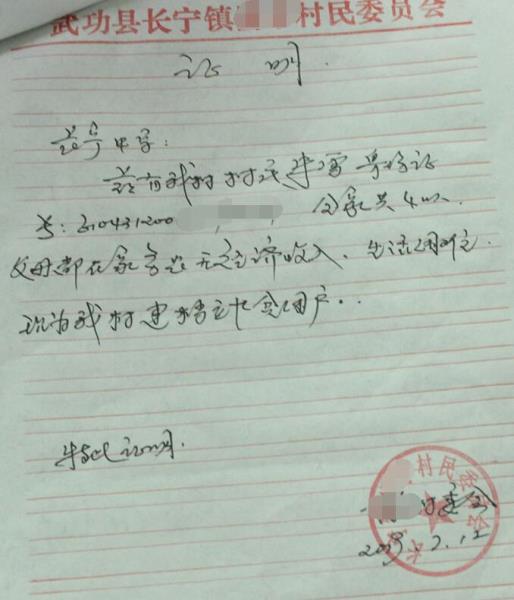 武功县长宁镇 村民委员会
证 明
中学:
兹有我村村民 身份证
号: 610431200 , , 全家共4口人.
父母都在家务农 无经济收入、生活困难.
现为我村建档立卡贫困户..
特此证明.
村民委员会
村委会